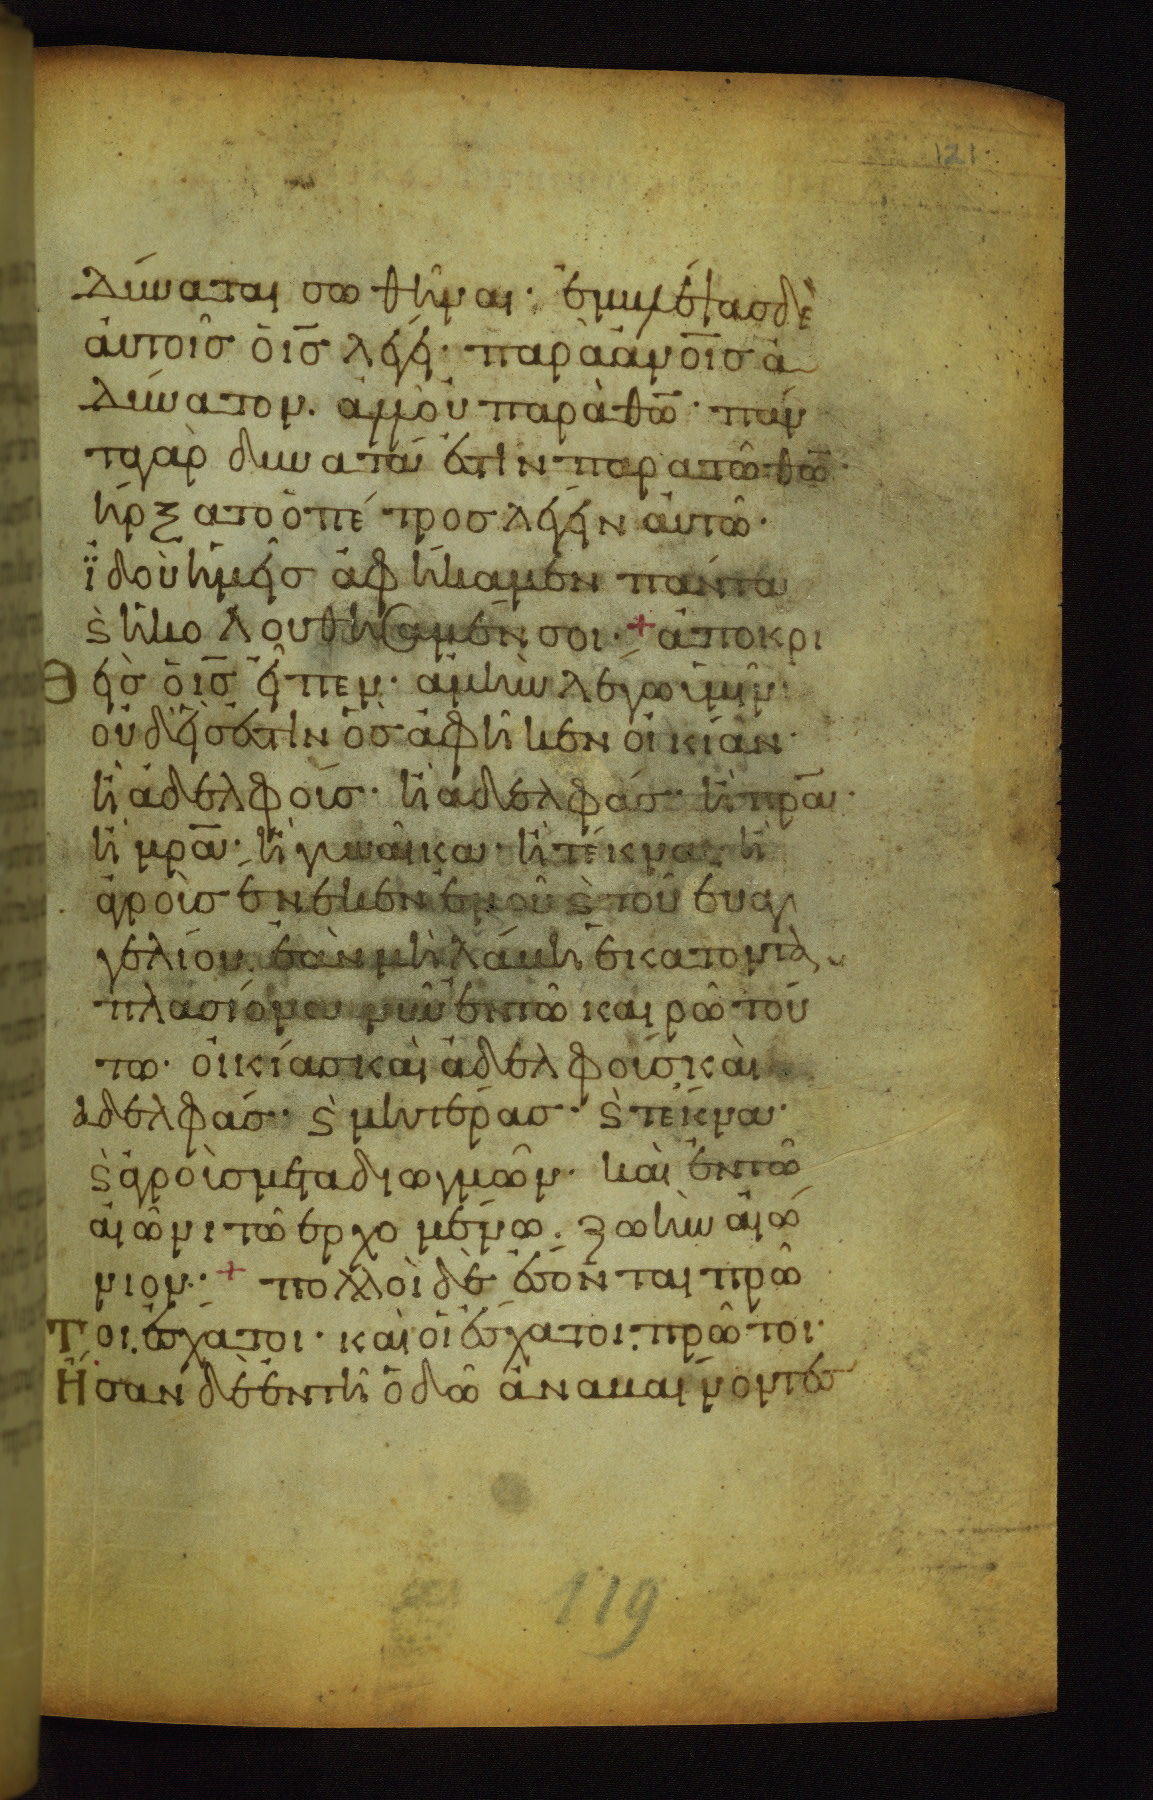 121
δύναται σωθῆναι· ἐμβλέψας δὲ
αὐτοῖς ὁ ισ λέγει· παρὰ ἀνοισ ἀ
δύνατον. ἀλλ' οὐ παρὰ θω· πάν
τα γὰρ δυνατά ἐστιν παρα τῶ θω·
ἤρξατο ὁ πέτρος λέγειν αὐτῶ·
ἰδοὺ ἡμεῖς ἀφήκαμεν πάντα
ϛ ἠκολουθήσαμέν σοι· + ἀποκρι
θεὶς ὁ ισ εἶπεν· ἀμὴν λέγω ὑμῖν·
οὐδείς ἐστιν ὃς ἀφῆκεν οἰκίαν·
ἢ ἀδελφούς· ἢ ἀδελφάς· ἢ πρα·
ἢ μρα· ἢ γυναῖκα· ἢ τέκνα· ἢ
ἀγροὺς ἕνεκεν ἐμοῦ ϛ τοῦ εὐαγ
γελίου. ἐὰν μὴ λάβη ἑκατοντα
πλασίονα νῦν ἐν τῶ καιρῶ τού
τω· οἰκίας καὶ ἀδελφοὺς καὶ
ἀδελφάς· ϛ μητέρας· ϛ τέκνα·
ϛ ἀγροὺς μετὰ διωγμῶν· καὶ ἐν τῶ
αἰῶνι τῶ ἐρχομένω· ζωὴν αἰώ
νιον· + πολλοὶ δὲ ἔσονται πρῶ
τοι ἔσχατοι· καὶ οἱ ἔσχατοι πρῶτοι·
Ἦσαν δὲ ἐν τῆ ὁδῶ ἀναβαίνοντες
119